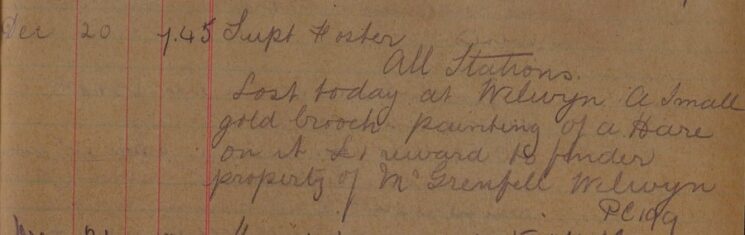 Dec 20 7.45 Supt Foster
All Stations.
Lost today at Welwyn A Small
gold brooch painting of a Hare
on it £1 reward to finder
property of Mr Grenfell Welwyn